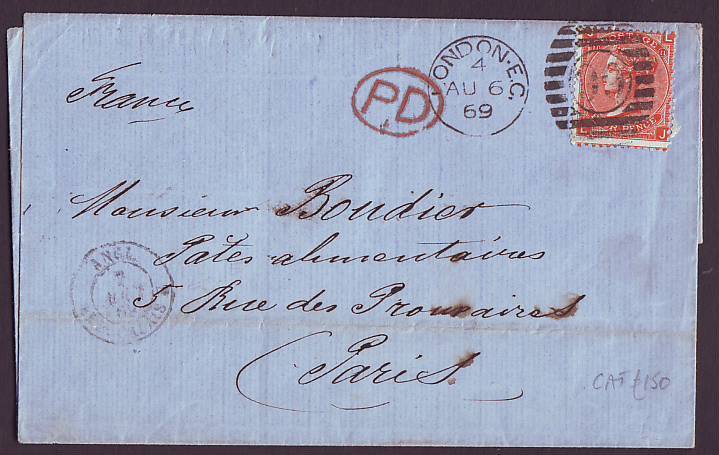 France
PD
LONDON·E.C.
4
AU 6
69
POSTAGE
J L
FOUR PENCE
L J
Monsieur Boudier
Pâtes alimentaires
5 Rue des Prouvaires
Paris
ANGL.
CALAIS
CAT £150